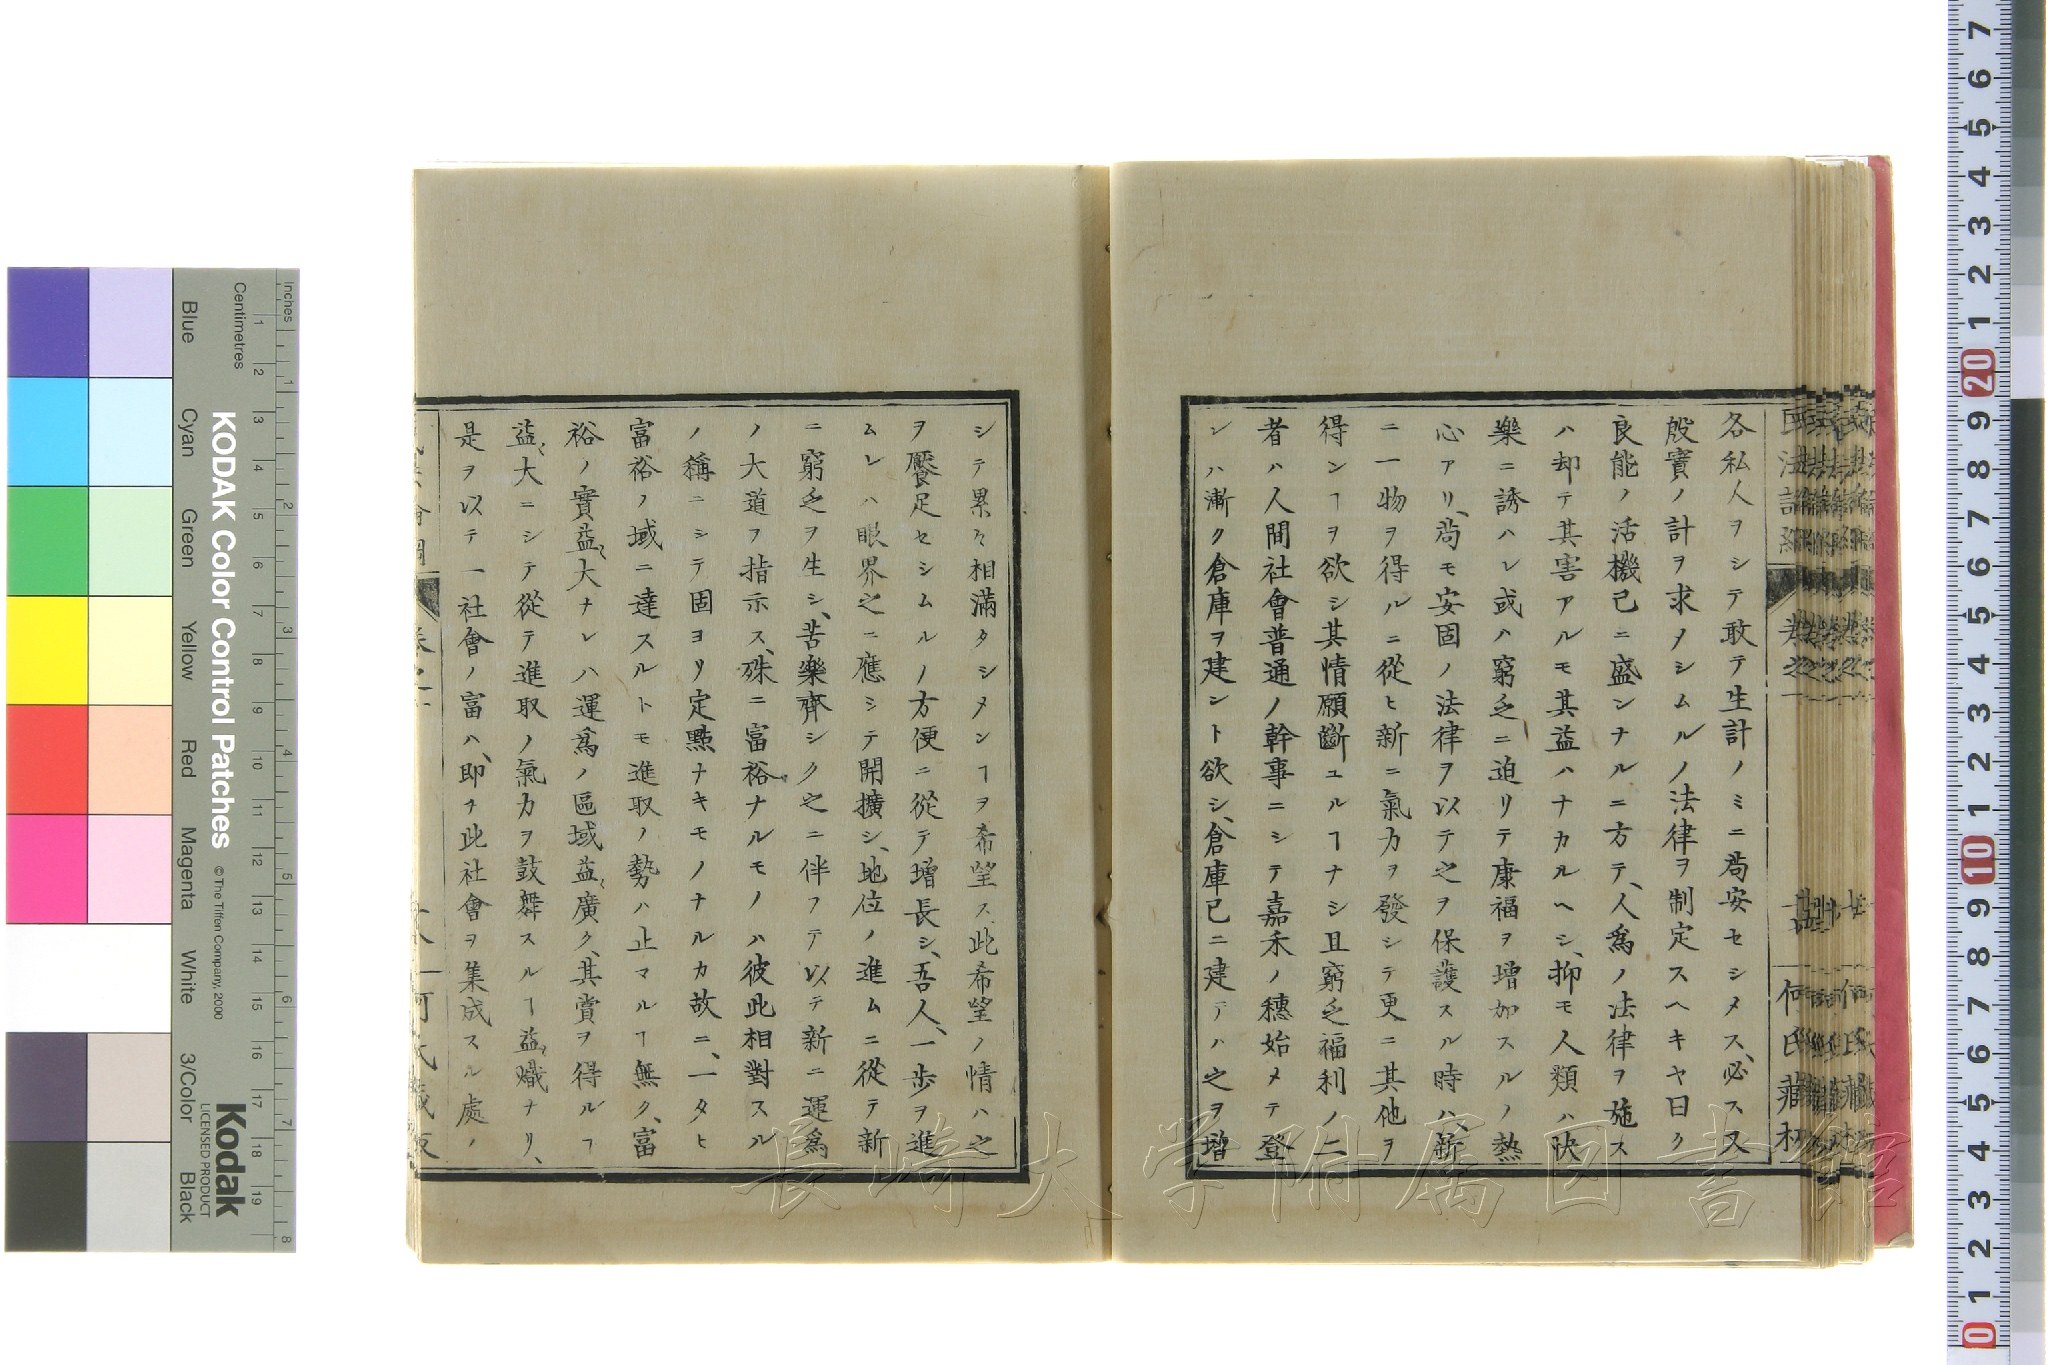 各私人ヲシテ敢テ生計ノミニ苟安セシメス、必スヌ
殷實ノ計ヲ求メシムルノ法律ヲ制定スヘキヤ曰ク
良能ノ活機已ニ盛ンナルニ方テ、人爲ノ法律ヲ施ス
ハ却テ其害アルモ其益ハナカルヘシ、抑モ人類ハ快
樂ニ誘ハレ或ハ窮乏ニ迫リテ康福ヲ増加スルノ熱
心アリ、苟モ安固ノ法律ヲ以テ之ヲ保護スル時ハ、新
ニ一物ヲ得ルニ從ヒ新ニ氣力ヲ發シテ更ニ其他ヲ
得ンヿヲ欲シ其情願斷ユルヿナシ且窮乏福利ノ二
者ハ人間社會普通ノ幹事ニシテ嘉禾ノ穗始メテ登
ンハ漸ク倉庫ヲ建ント欲シ、倉庫已ニ建テハ之ヲ増
シテ累々相滿タシメンヿヲ希望ス此希望ノ情ハ之
ヲ饜足セシムルノ方便ニ從テ増長シ、吾人、一歩ヲ進
ムレハ眼界之ニ應シテ開擴シ、地位ノ進ムニ從テ新
ニ窮乏ヲ生シ、苦樂齊シク之ニ伴フテ以テ新ニ運爲
ノ大道ヲ指示ス、殊ニ富裕ナルモノハ彼此相對スル
ノ稱ニシテ固ヨリ定點ナキモノナルカ故ニ、一タヒ
富裕ノ域ニ達スルトモ進取ノ勢ハ止マルヿ無ク、富
裕ノ實益〻大ナレハ運爲ノ區域益〻廣ク、其賞ヲ得ルヿ
益〻大ニシテ從テ進取ノ氣力ヲ鼓舞スルヿ益〻熾ナリ、
是ヲ以テ一社會ノ富ハ、即チ此社會ヲ集成スル處ノ
何氏藏板
KODAK Color Control Patches
© The Tiffen Company, 2000
Kodak
LICENSED PRODUCT
Inches
Centimetres
Blue
Cyan
Green
Yellow
Red
Magenta
White
3/Color
Black
長崎大学附属図書館